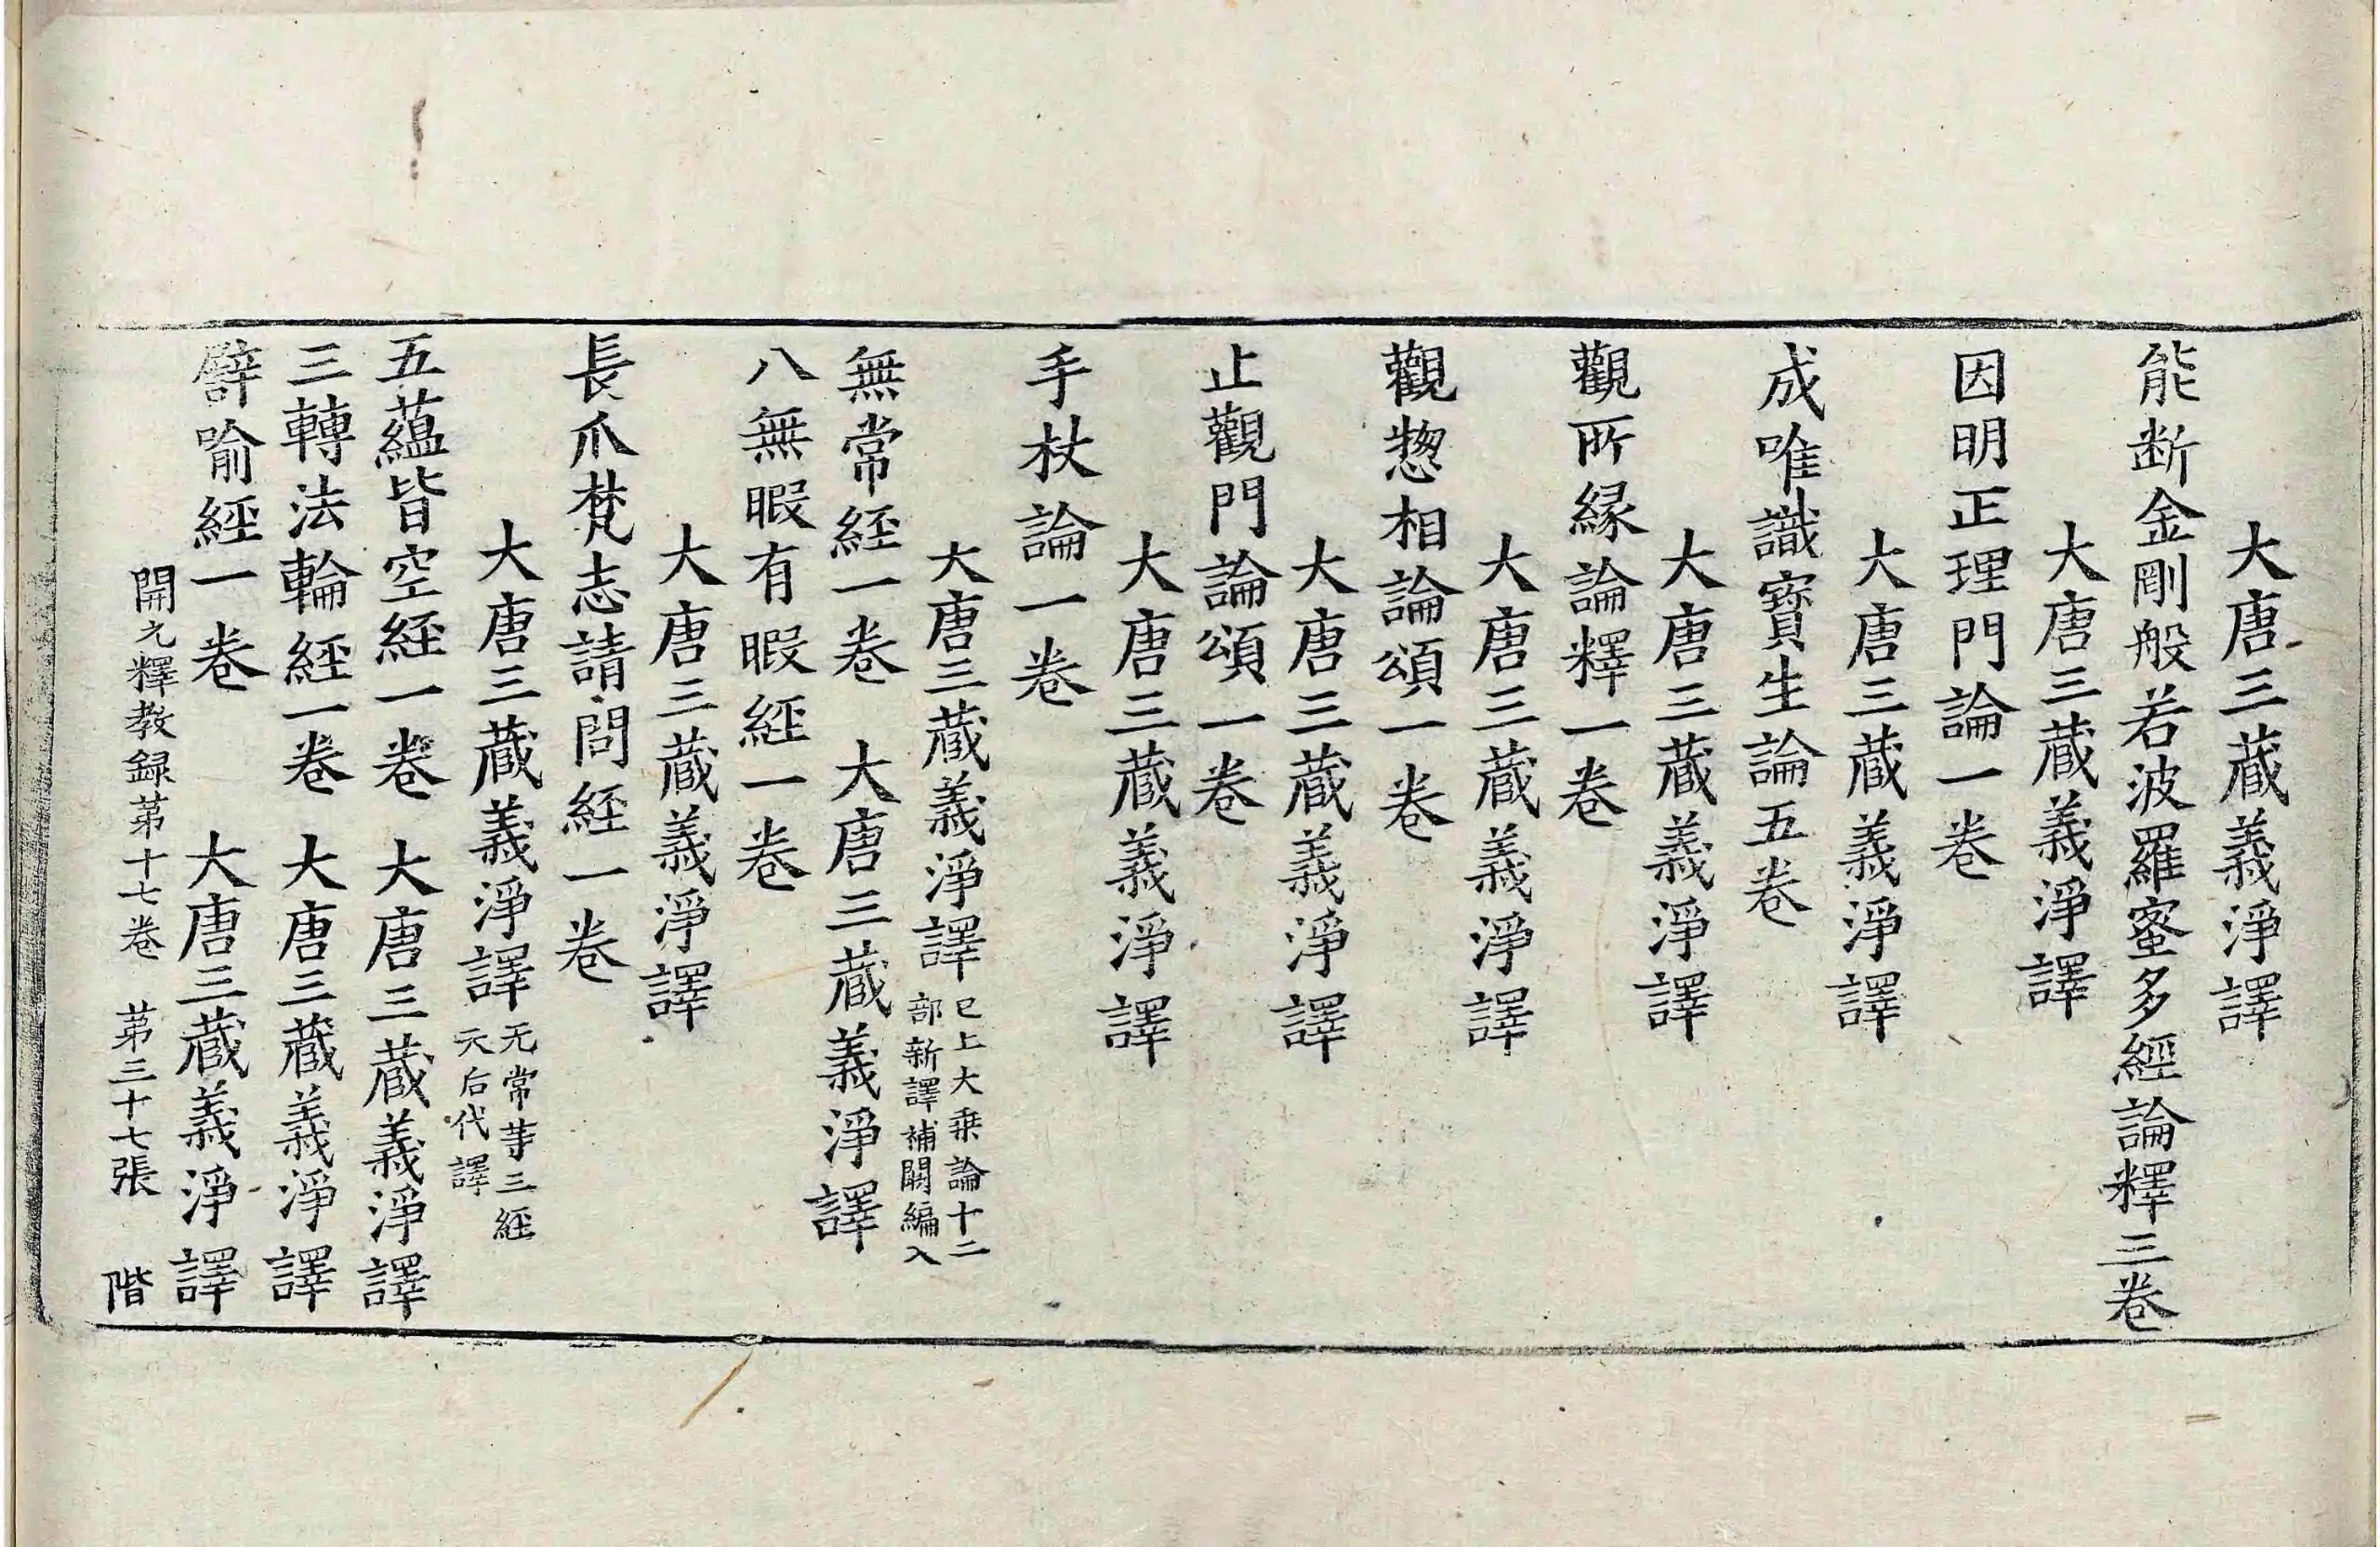 大唐三蔵義淨譯
能断金剛般若波羅蜜多經論釋三卷
大唐三蔵義淨譯
因明正理門論一卷
大唐三蔵義淨譯
成唯識寳生論五卷
大唐三蔵義淨譯
觀所縁論釋一卷
大唐三蔵義淨譯
觀惣相論頌一卷
大唐三蔵義淨譯
止觀門論頌一卷
大唐三蔵義淨譯
手杖論一卷
大唐三蔵義淨譯 已上大乗論十二
部新譯補闕編入
無常経一卷 大唐三蔵義淨譯
八無暇有暇經一卷
大唐三蔵義淨譯
長爪梵志請問経一卷
大唐三蔵義淨譯 无常等三経
天后代譯
五蘊皆空経一卷 大唐三蔵義淨譯
三轉法輪經一卷 大唐三蔵義淨譯
譬喻經一卷 大唐三蔵義淨譯
開元釋教録苐十七卷 苐三十七張 階